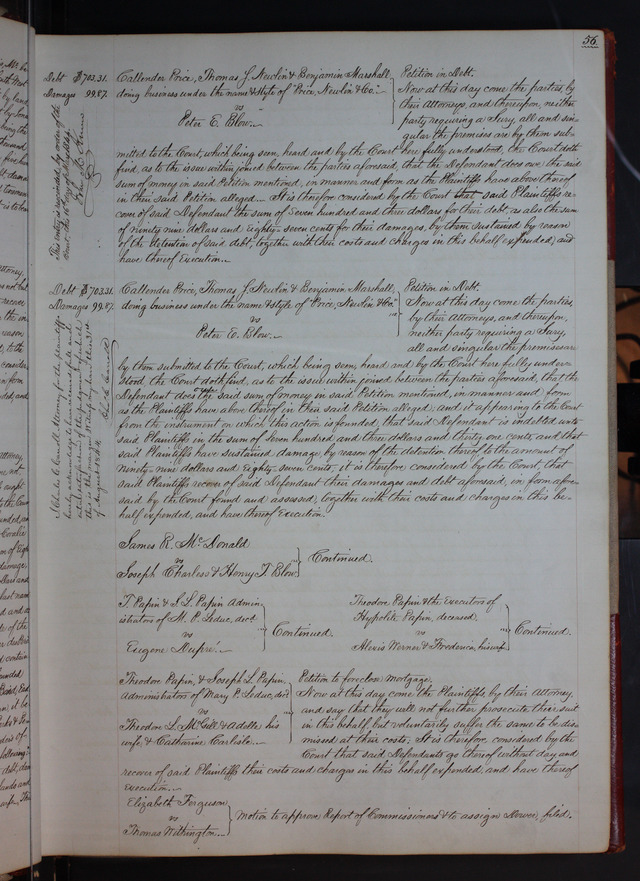 56.
Debt $703.31.
Damages 99.87.
Callender Price, Thomas J. Newlin & Benjamin Marshall,
doing business under the name & style of "Price, Newlin & Co."
vs
Peter E. Blow.
Petition in Debt.
Now at this day come the parties by
their Attorneys, and thereupon, neither
party requiring a Jury, all and sin-
gular the premises are by them sub-
mitted to the Court, which being seen, heard and by the Court here fully understood, the Court doth
find, as to the issue within joined between the parties aforesaid, that the Defendant does owe the said
sum of money in said Petition mentioned, in manner and form as the Plaintiffs have above thereof
in their said Petition alleged. It is therefore considered by the Court that said Plaintiffs re-
cover of said Defendant the sum of Seven hundred and three dollars for their debt, as also the sum
of ninety nine dollars and Eighty-seven cents for their damages, by them sustained by reason
of the detention of said debt, together with their costs and charges in this behalf expended, and
have thereof Execution.
This entry is rescinded by order of the
Debt $703.31.
Damages 99.87.
Callender Price, Thomas J. Newlin & Benjamin Marshall,
doing business under the name & style of "Price, Newlin & Co."
vs
Peter E. Blow.
Petition in Debt.
Now at this day come the parties,
by their Attorneys, and thereupon,
neither party requiring a Jury,
all and singular the premises are
by them submitted to the Court, which being seen, heard and by the Court here fully under-
stood, the Court doth find, as to the issue within joined between the parties aforesaid, that the
Defendant does owe the said sum of money in said Petition mentioned, in manner and form
as the Plaintiffs have above thereof in their said Petition alleged; and it appearing to the Court
from the instrument on which this action is founded, that said Defendant is indebted unto
said Plaintiffs in the sum of Seven hundred and three dollars and thirty-one cents, and that
said Plaintiffs have sustained damage by reason of the detention thereof to the amount of
Ninety-nine dollars and Eighty-seven cents, it is therefore considered by the Court, that
said Plaintiffs recover of said Defendant their damages and debt aforesaid, in form afore-
said by the Court found and assessed, together with their costs and charges in this be-
half expended, and have thereof Execution.
James R. McDonald
vs
Joseph Charless & Henry T. Blow
Continued.
T. Papin & S. L. Papin Admin-
istrators of M. P. Leduc, decd
vs
Eugene Dupré.
Continued.
Theodore Papin & the Executors of
Hypolite Papin, deceased.
vs
Alexis Werner & Frederica, his wife
Continued.
Theodore Papin, & Joseph L. Papin,
Administrators of Mary P. Leduc, decd
vs
Theodore L. McGill & Adelle his
wife, & Catharine Carlisle.
Petition to foreclose mortgage.
Now at this day come the Plaintiffs, by their Attorney,
and say that they will not further prosecute their suit
in this behalf, but voluntarily suffer the same to be dis-
missed at their costs; It is therefore, considered by the
Court that said Defendants go thereof without day and
recover of said Plaintiffs their costs and charges in this behalf expended, and have thereof
Execution.
Elizabeth Ferguson
vs
Thomas Withington.
Motion to approve Report of Commissioners & to assign Dower, filed.